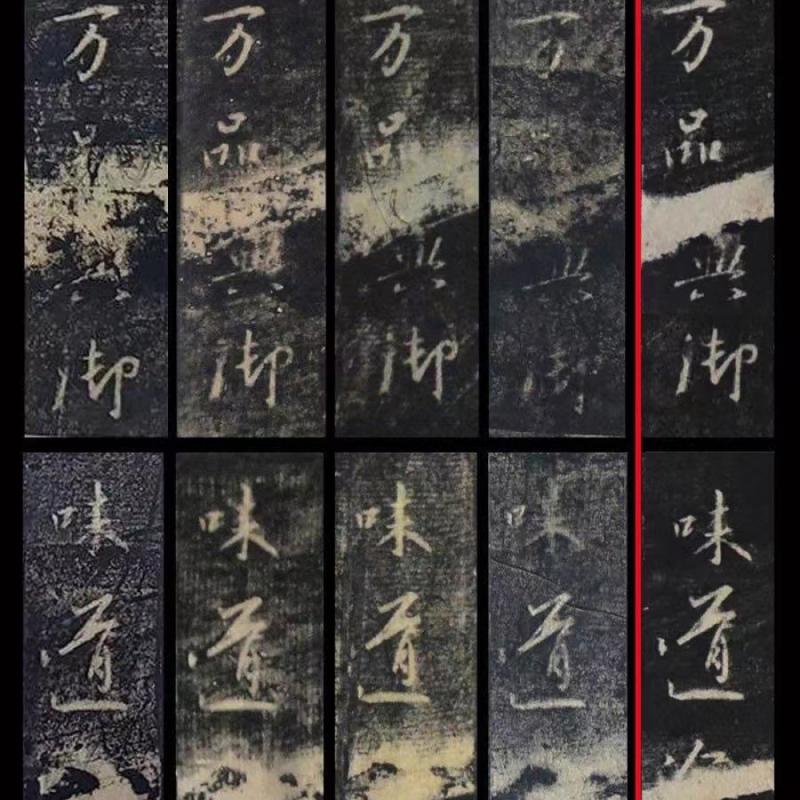 万品典御
万品典御
万品典御
万典御
万品典御
味道
味道
味道
味道
味道